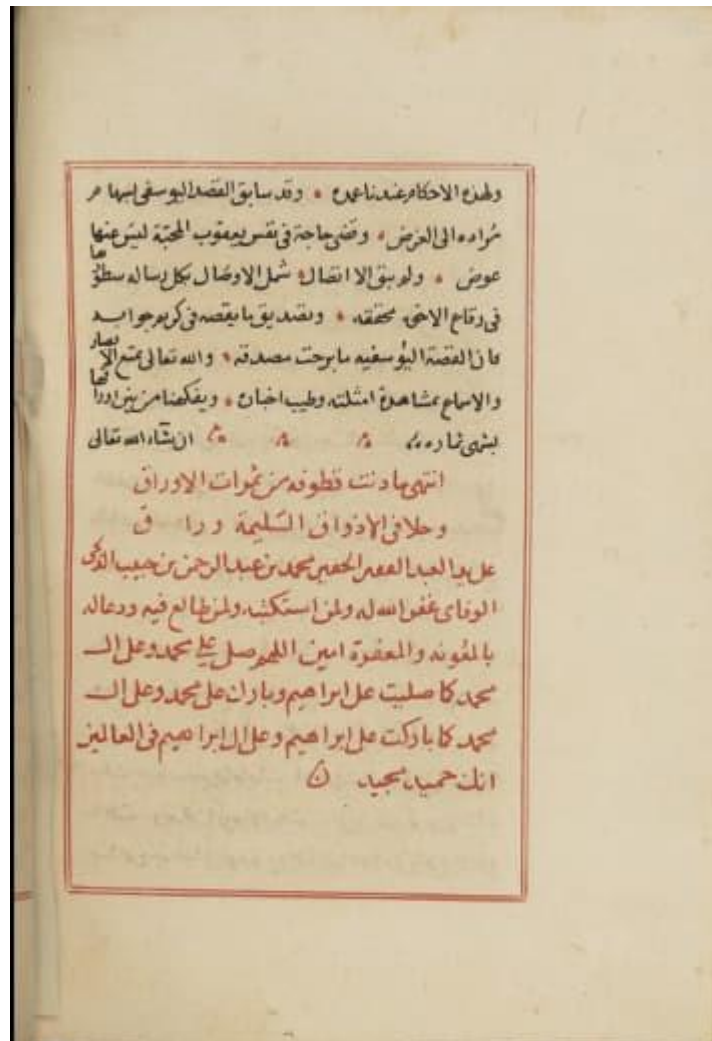 ولهذه الاحكام عندنا عمده ۰ وقد سابق القصد اليوسفي بسهام
مراده الى الغرض ۰ وقضى حاجة في نفس يعقوب المحبة ليس عنها
عوض ۰ ولم يبق الا اتصال شمل الاوصال بكل رساله سطورها
في رقاع الاخى محققه ۰ وتصديق ما يقصه في كريم جوابه
فان القصة اليوسفيه ما برحت مصدقه ۰ والله تعالى يمتع الابصار
والاسماع بمشاهدة امثلته وطيب اخباره ۰ ويفكهنا من بين اوراقها
بشهى ثماره ان شاء الله تعالى
انتهى ما دنت قطوفه من ثمرات الاوراق
وحلا في الاذواق السليمة وراق
على يد العبد الفقير الحقير محمد بن عبد الرحمن بن حبيب
الوفاى غفر الله له ولمن استكتبه ولمن طالع فيه ودعا له
بالمغفرة امين اللهم صل على محمد وعلى ال
محمد كما صليت على ابراهيم وبارك على محمد وعلى ال
محمد كما باركت على ابراهيم وعلى ال ابراهيم في العالمين
انك حميد مجيد